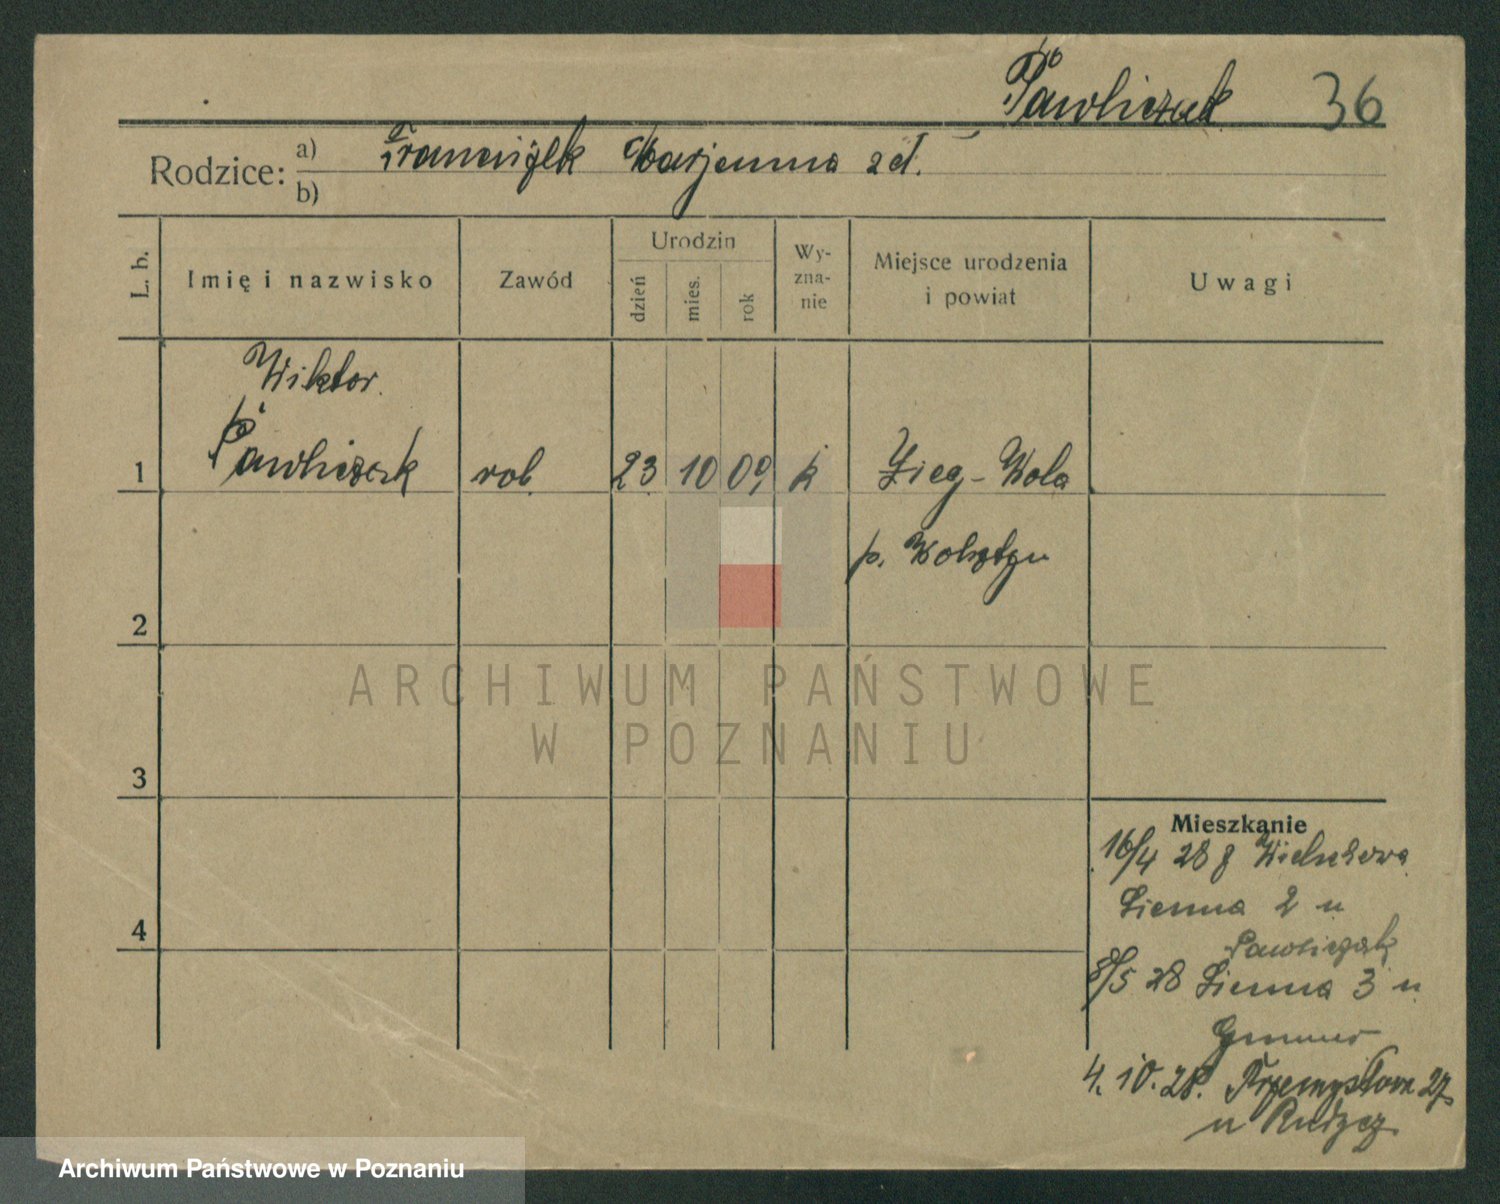 Pawliczak 36
Rodzice: a) Franciszek Marjanna zd.
b)
L. b.
Imię i nazwisko
Zawód
Urodzin
dzień
mies.
rok
Wy-
zna-
nie
Miejsce urodzenia
i powiat
Uwagi
Wiktor
1 Pawliczak rob 23 10 09 k Zieg-Wola
p. Wolsztyn
2
3
4
Mieszkanie
16/4 28
Sienna 2 u
Pawliczak
8/5 28 Sienna 3 u
4. 10. 28. Przemysłowa 27
u
ARCHIWUM PAŃSTWOWE
W POZNANIU
Archiwum Państwowe w Poznaniu